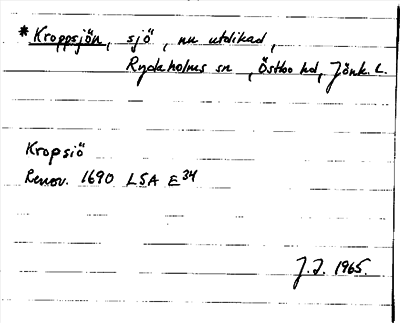 *Kroppsjön, sjö, nu utdikad,
Rydaholms sn, Östbo hd, Jönk. L.
Kropsiö
Renov. 1690 LSA E34
J.J. 1965.